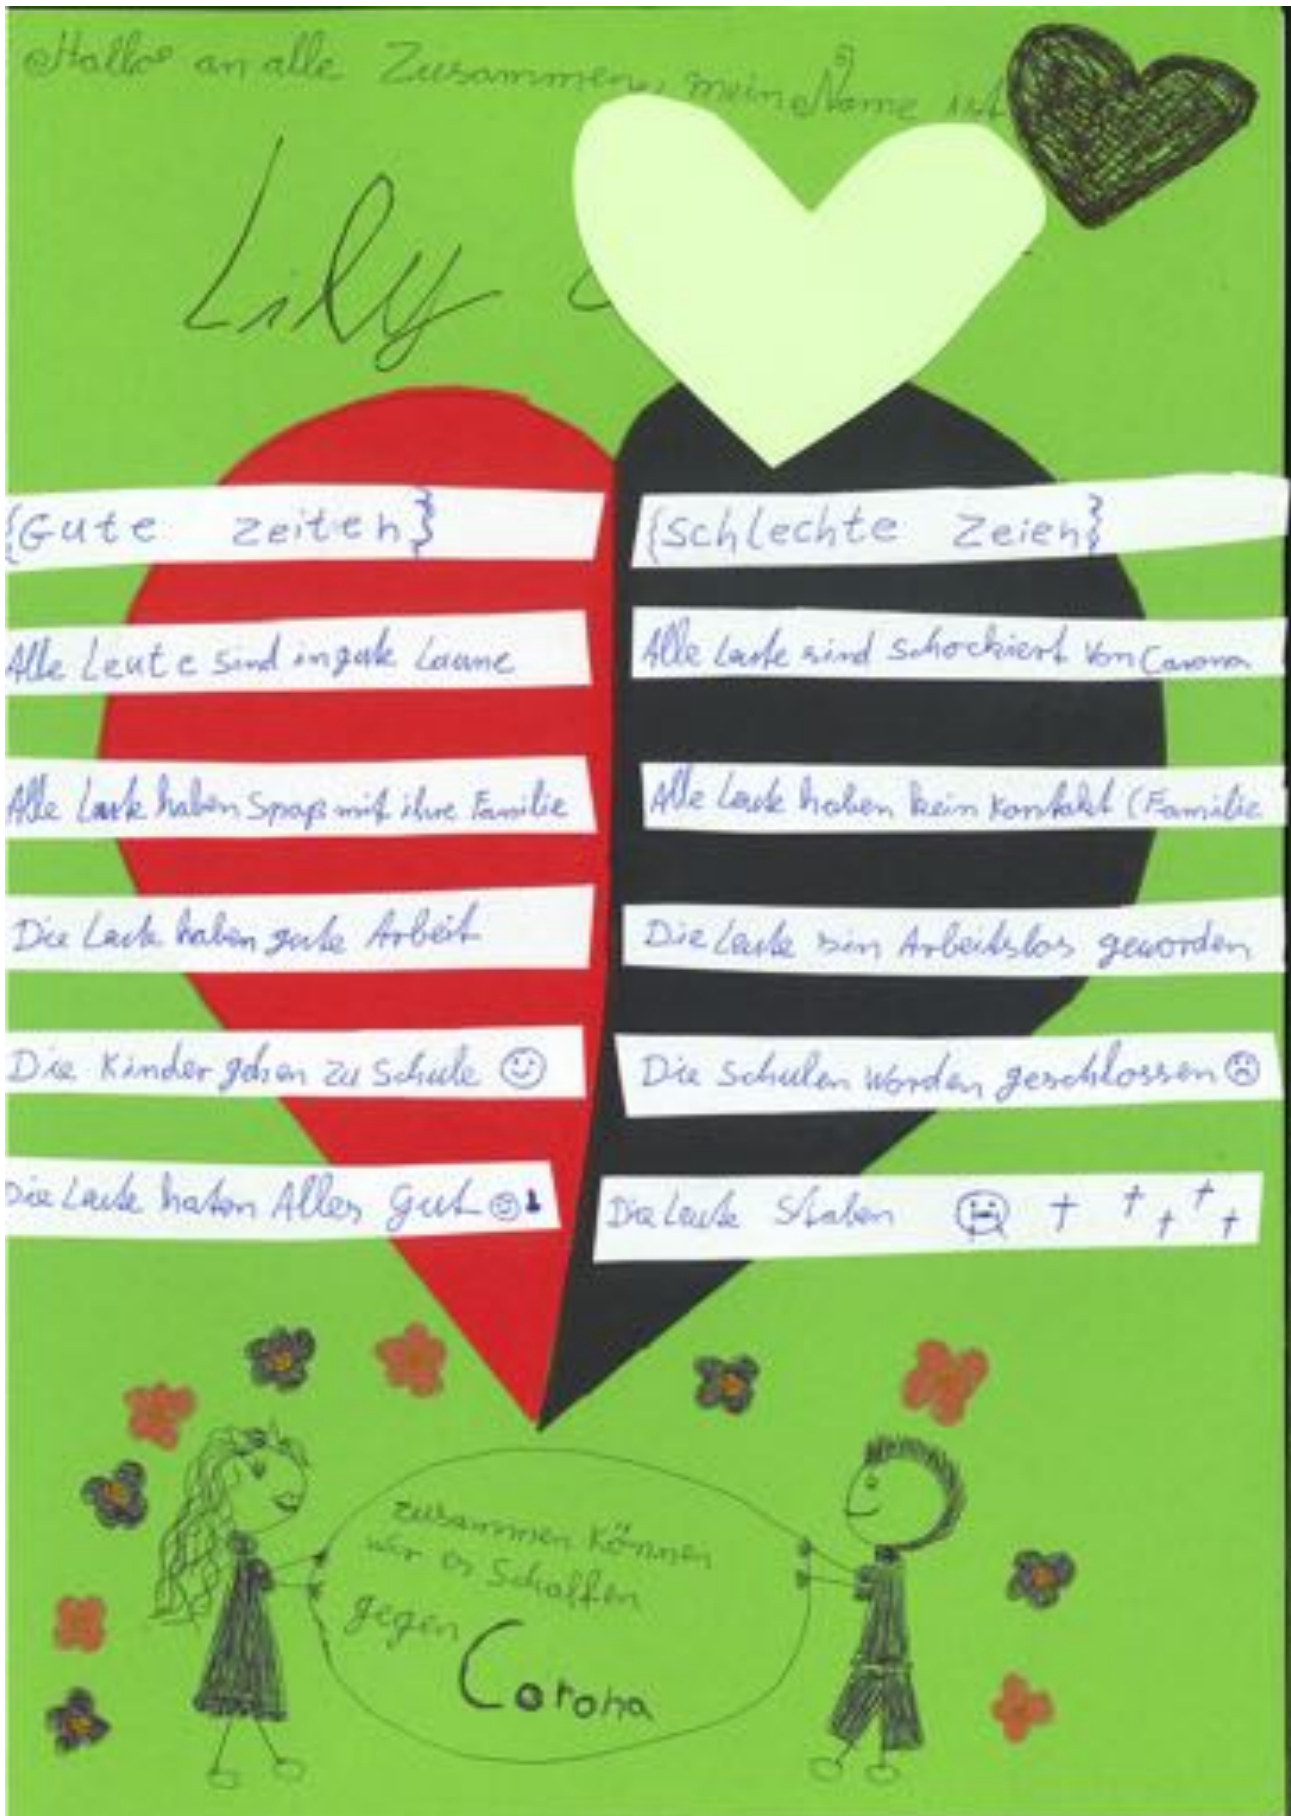 Hallo an alle Zusammen, meine Name ist
Lily
{Gute Zeiten}
Alle Leute sind in gute Laune
Alle Leute haben Spaß mit ihre Familie
Die Leute haben gute Arbeit
Die Kinder gehen zu Schule
Die Leute haben Alles Gut
{Schlechte Zeien}
Alle Leute sind schockiert von Corona
Alle Leute haben kein Kontakt (Familie
Die Leute sin Arbeitslos geworden
Die Schulen worden geschlossen
Die Leute Staben
zusammen können
wir es Schaffen
gegen
Corona